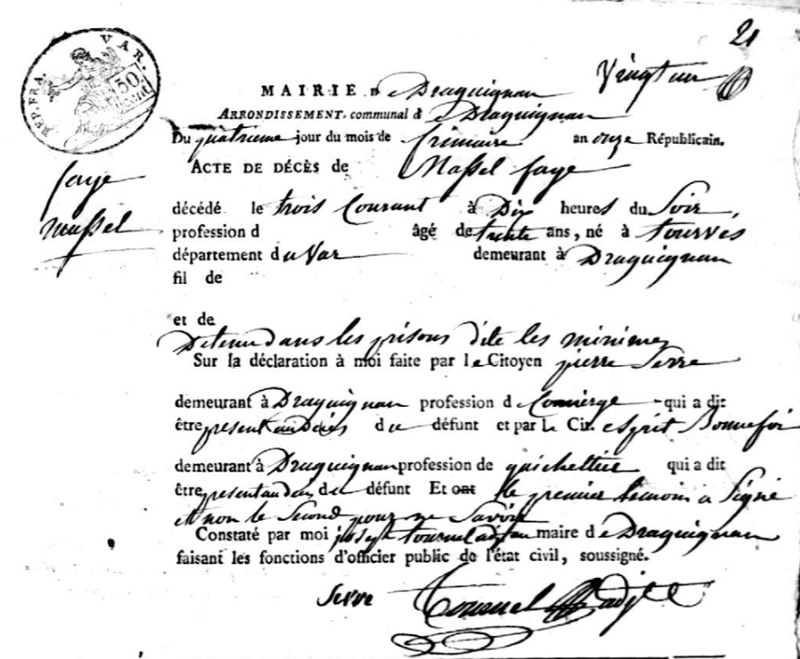 21
Vingt un
REP. FRA. VAR.
50 Cent
MAIRIE de Draguignan
ARRONDISSEMENT communal de Draguignan
Du quatrieme jour du mois de frimaire an onze Républicain.
ACTE DE DÉCÈS de Nassel faye
faye
nassel
décédé le trois Courant à Dix heures du Soir,
profession d âgé de trente ans, né à tourves
département du Var demeurant à Draguignan
fil de
et de
Detenu dans les prisons dite les minimes
Sur la déclaration à moi faite par le Citoyen pierre Serre
demeurant à Draguignan profession de Concierge qui a dit
être present au décés du défunt et par le Cit. esprit Bonnefoi
demeurant à Draguignan profession de guichettier qui a dit
être present au du défunt Et ont le premier temoin a Signé
et non le Second pour ne Savoir
Constaté par moi joseph tournel adjt au maire de Draguignan
faisant les fonctions d'officier public de l'état civil, soussigné.
Serre Tournel adjt